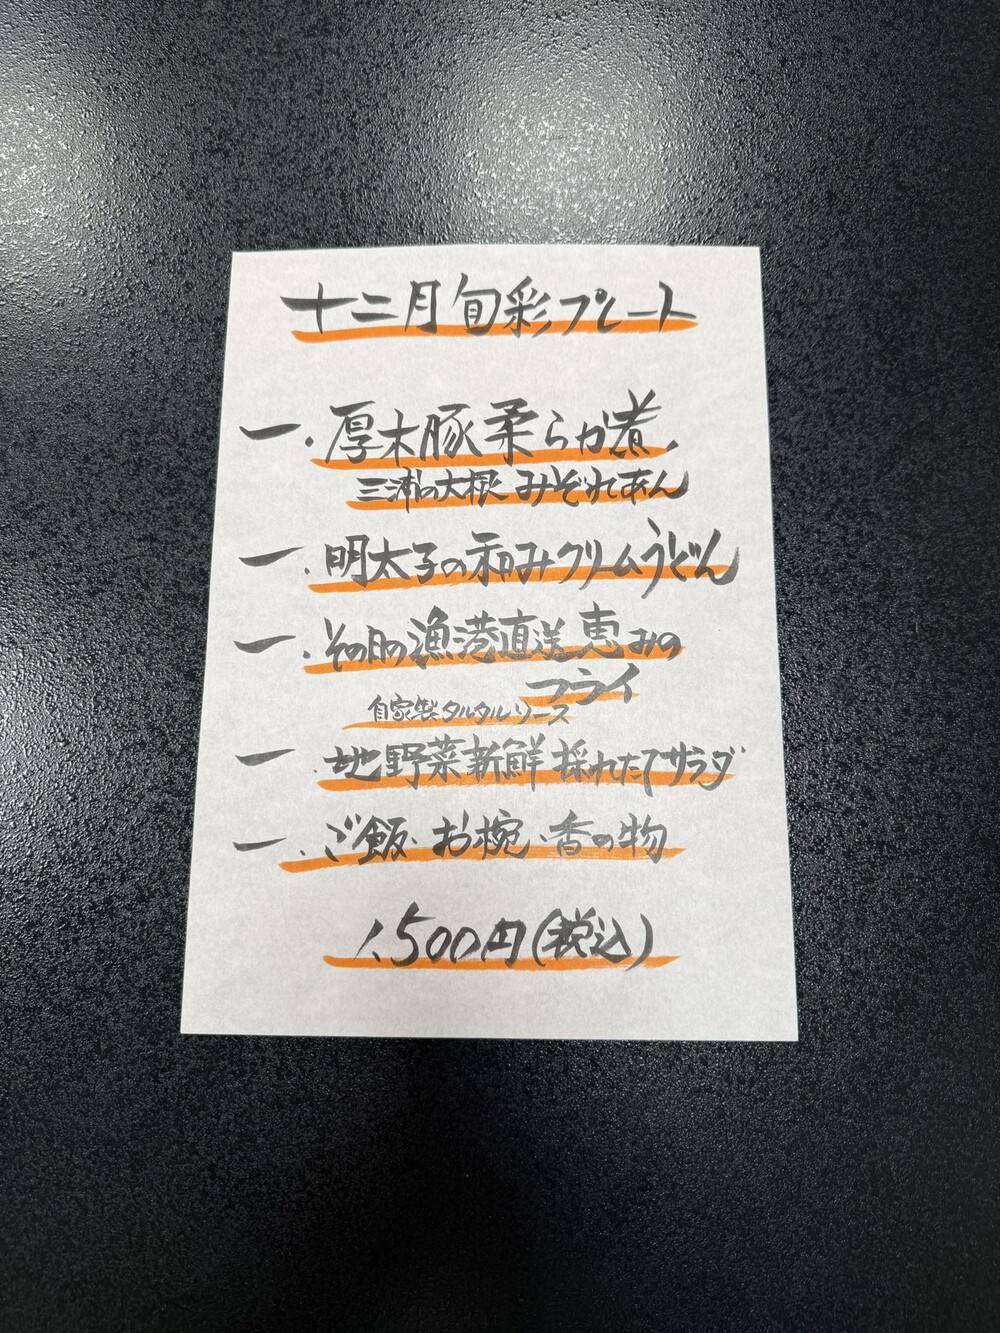 十二月旬彩プレート
一.厚木豚柔らか煮
三浦の大根みぞれあん
一.明太子の和みクリームうどん
一.その日の漁港直送恵みの
フライ
自家製タルタルソース
一.地野菜新鮮採れたてサラダ
一.ご飯・お椀・香の物
1,500円(税込)